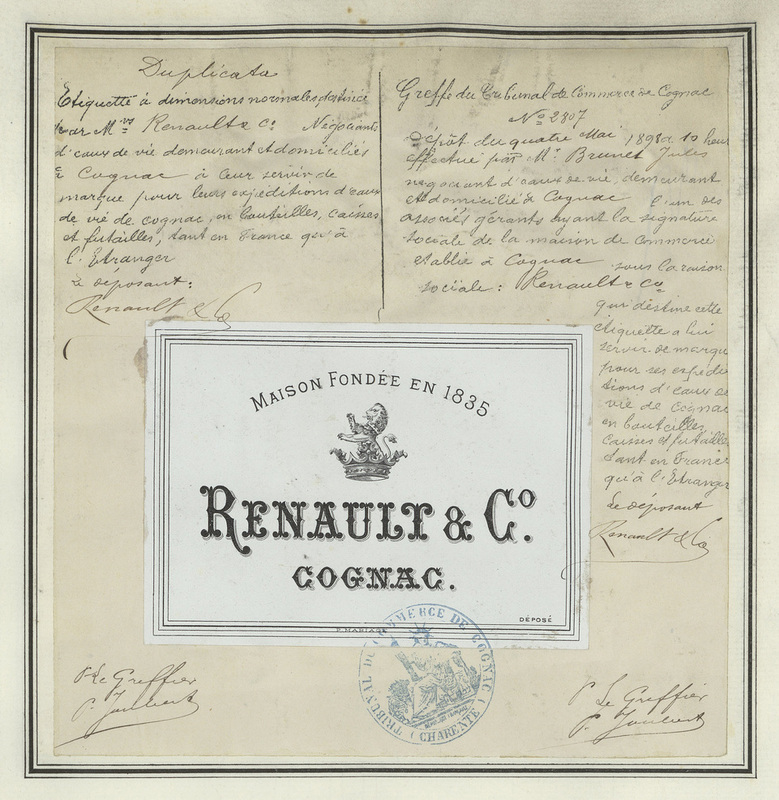 Duplicata
Etiquette à dimensions normales destinée
par Mrs Renault & Co Négociants
d'eaux de vie demeurant et domiciliés
à Cognac à leur servir de
marque pour leurs expéditions d'eaux
de vie de cognac, en bouteilles, caisses
et futailles, tant en France qu'à
l'Etranger
Le déposant:
Renault & Co
Greffe du Tribunal de Commerce de Cognac
No 2807
Dépôt du quatre Mai à 10 heures
effectué par Mr Brunet Jules
négociant d'eaux de vie, demeurant
et domicilié à Cognac l'un des
associés gérants ayant la signature
sociale de la maison de commerce
établie à Cognac sous la raison
sociale: Renault & Co
qui destine cette
étiquette à lui
servir de marque
pour ses expédi
tions d'eaux de
vie de cognac
en bouteilles,
caisses et futailles
tant en France
qu'à l'Etranger
Le déposant
Renault & Co
MAISON FONDÉE EN 1835
RENAULT & Co.
COGNAC.
DÉPOSÉ
TRIBUNAL DE COMMERCE DE COGNAC
(CHARENTE)
P. Le Greffier
P. Joubert
P. Le Greffier
P. Joubert